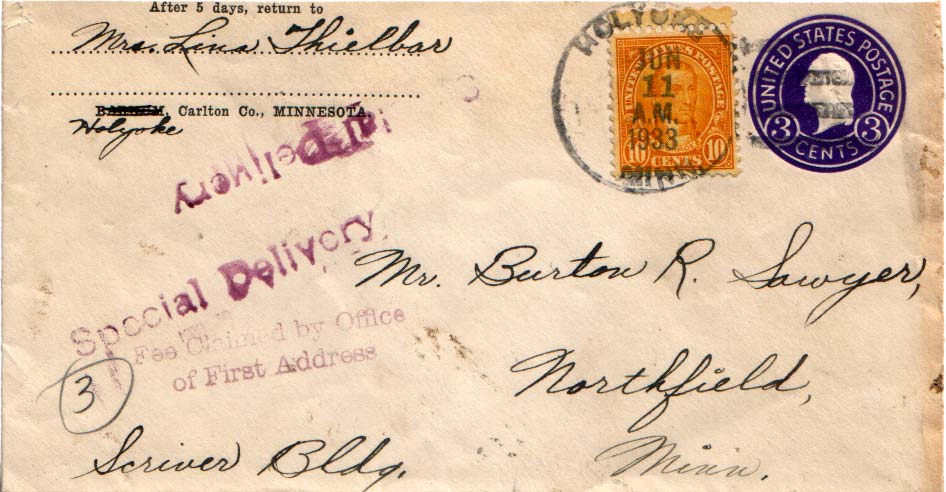 After 5 days, return to
Mrs. Lina Thielbar
BARNUM, Carlton Co., MINNESOTA.
Holyoke
HOLYOKE
JUN
11
A.M.
1933
MINN.
UNITED STATES POSTAGE
10 CENTS 10
UNITED STATES POSTAGE
3 3
CENTS
Delivery
Special Delivery
Fee Claimed by Office
of First Address
3
Mr. Burton R. Sawyer,
Northfield,
Scriver Bldg. Minn.